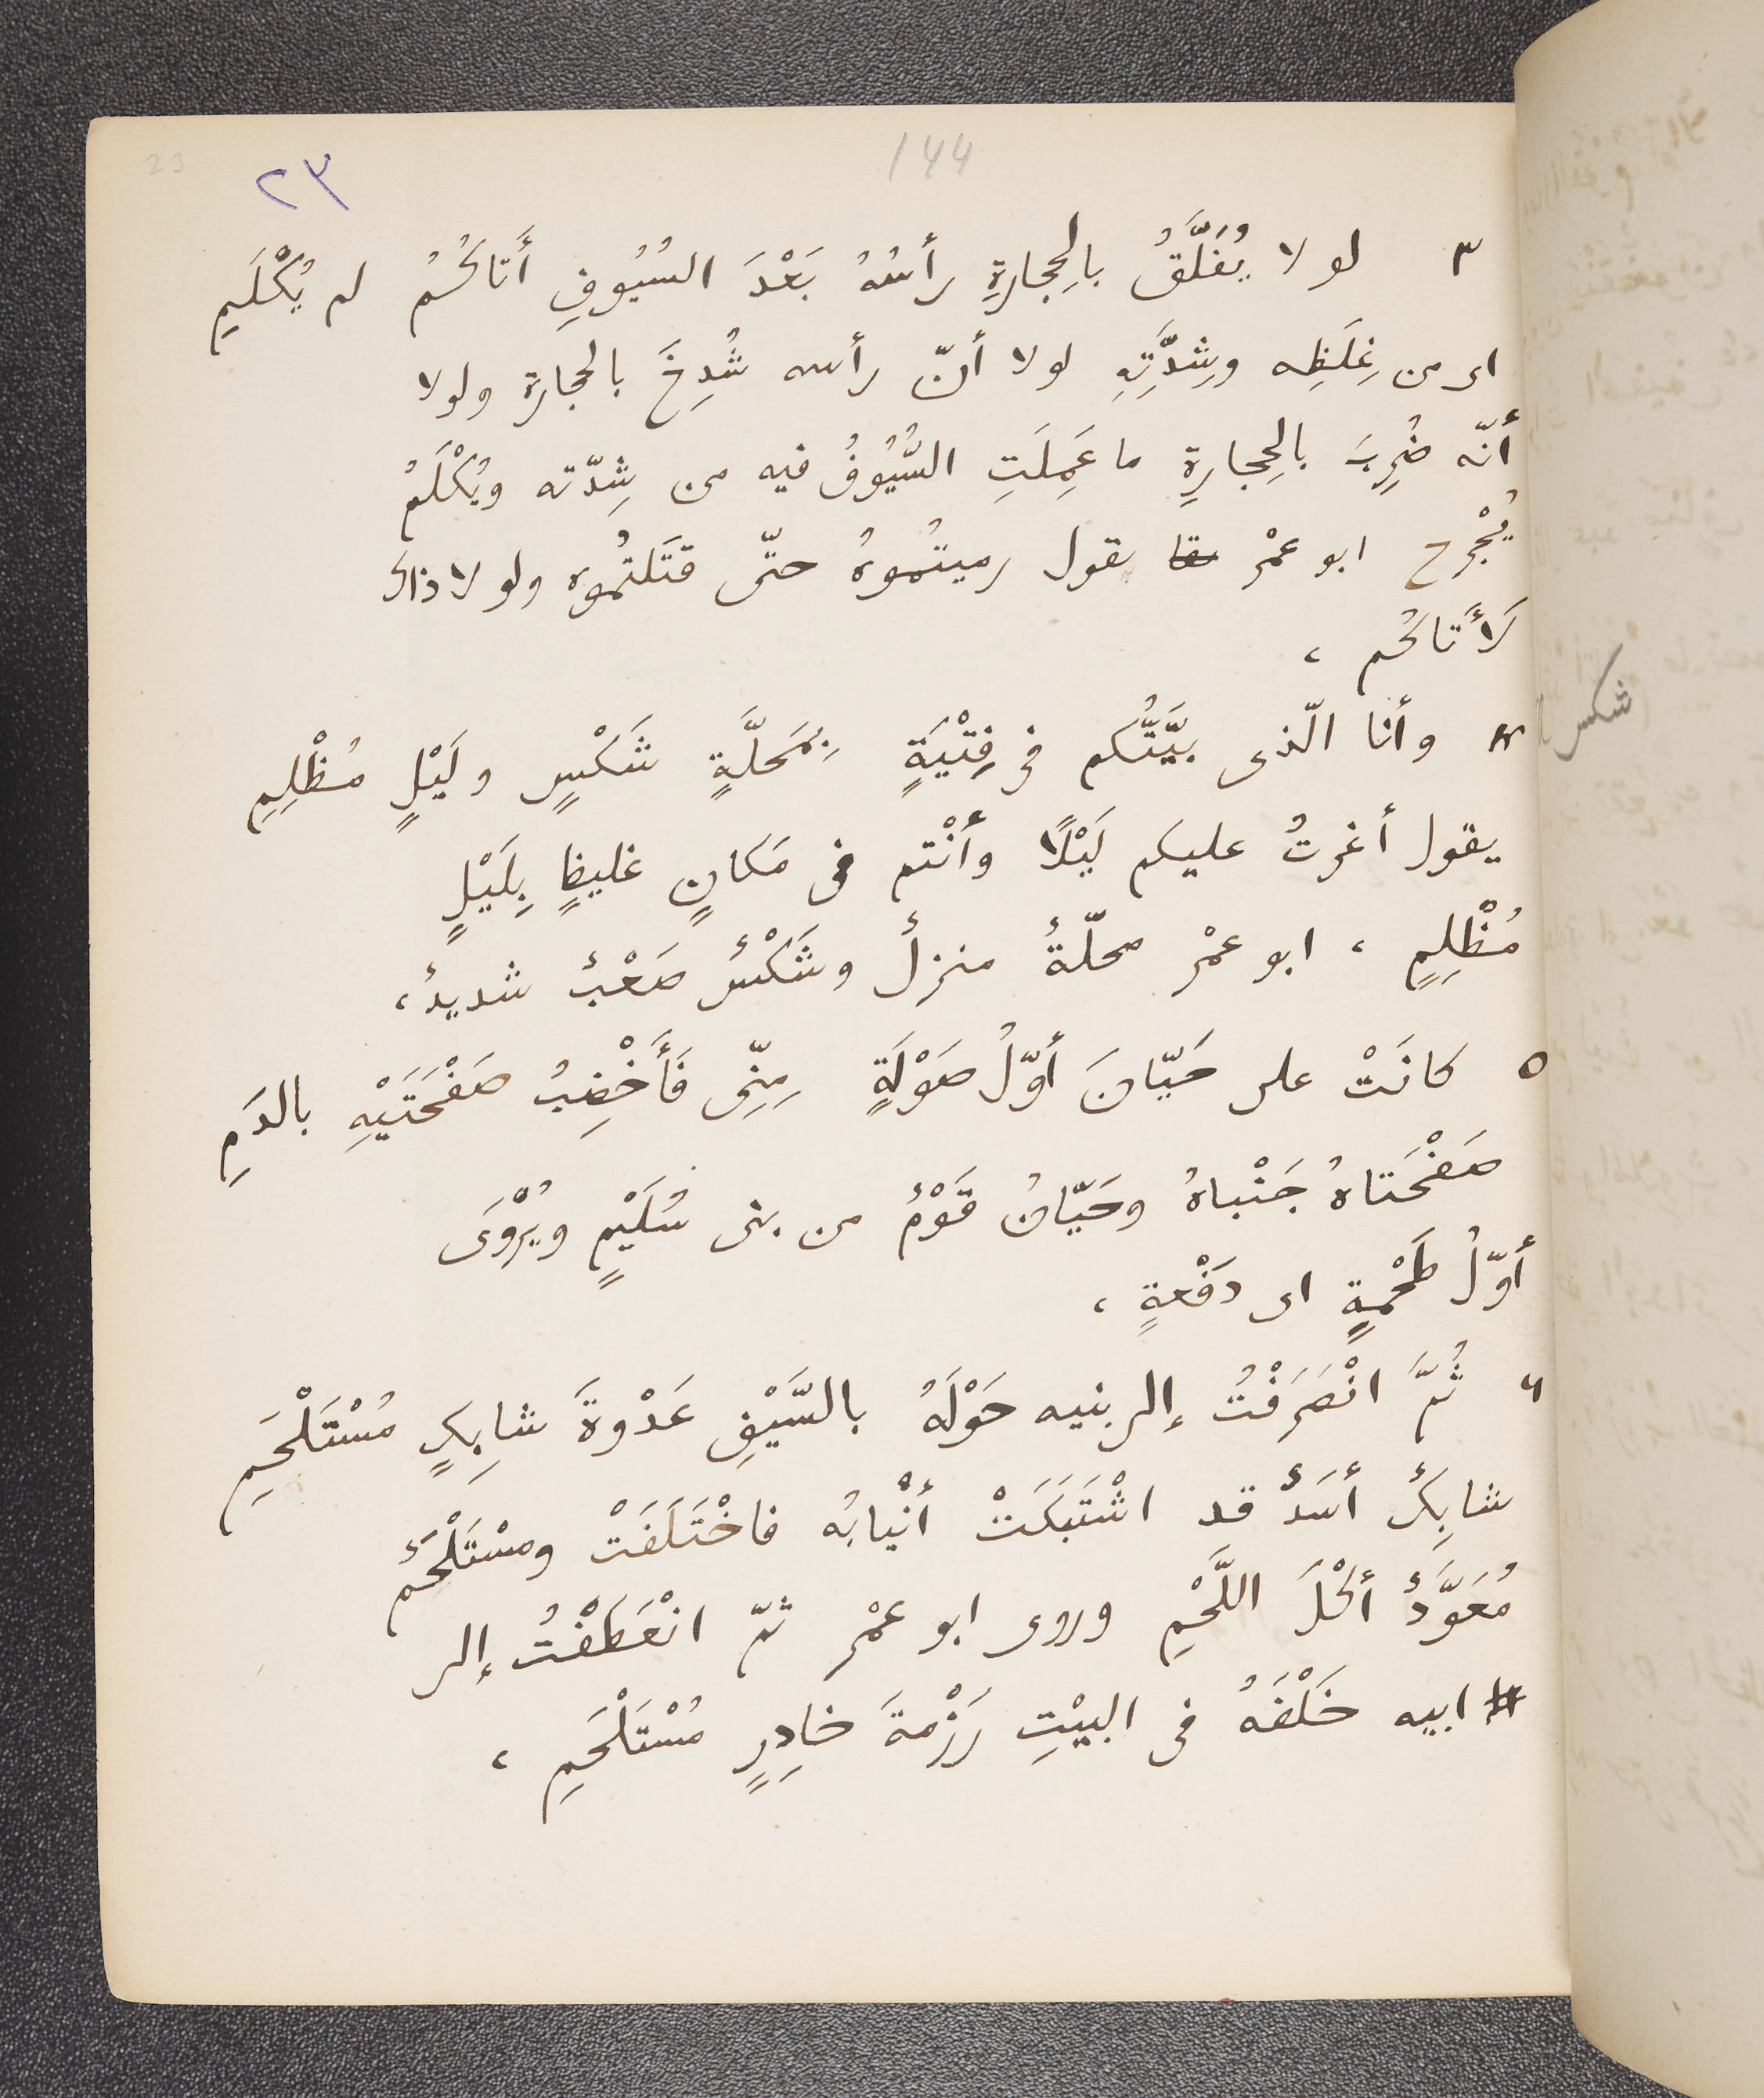 23 ٢٣ 144
٣ لو لا يُفَلَّقُ بالِحِجارةِ رأسُهُ بَعْدَ السُيُوفِ أَتاكُمُ لم يُكْلَمِ
اى من غِلَظِه وشِدَّتِهِ لولا أنّ رأسه شُدِخَ بالحجارة ولولا
أنّه ضُرِبَ بالِحِجارةِ ما عَمِلَتِ السُّيُوفُ فيه من شِدّته ويُكْلَمُ
يُجْرح ابو عمْرٍ يقول رميتُموهُ حتّى قتَلتُموه ولو لا ذاك
لَأتاكُم ،
٤ وأنا الّذى بيَّتُّكم فى فِتْيَةٍ بِمَحَلَّةٍ شَكْسٍ ولَيْلٍ مُظْلِمِ
شكس
يقول أغرتُ عليكم لَيْلًا وأنْتم فى مَكانٍ غليظٍ بِلَيْلٍ
مُظْلِمٍ ، ابو عمْرٍ محلّةٌ منزلٌ وشَكْسٌ صَعْبٌ شديدٌ ،
٥ كانَتْ على حَيّانَ أوّلُ صَوْلَةٍ مِنِّى فَأَخْضِبُ صَفْحَتَيْهِ بالدَمِ
صَفْحَتاهُ جَنْباهُ وحَيّانُ قَوْمٌ من بنى سُلَيْمٍ ويُرْوَى
أوّلُ طَحْمةٍ اى دَفْعةٍ ،
٦ ثُمَّ انْصَرَفْتُ إلى بنيه حَوْلَهُ بالسَّيْفِ عَدْوةَ شابِكٍ مُسْتَلْحَمِ
شابِكٌ أسَدٌ قد اشْتَبَكَتْ أنْيابُه فاخْتَلَفَتْ ومسْتَلْحَمٌ
مُعَوَّدٌ أكْلَ اللَّحْمِ وروى ابو عمْرٍ ثمّ انْعَطَفْتُ إلى
ابيه خَلْفَهُ فى البيْتِ رَزْمةَ خادِرٍ مُسْتَلْحَمِ ،